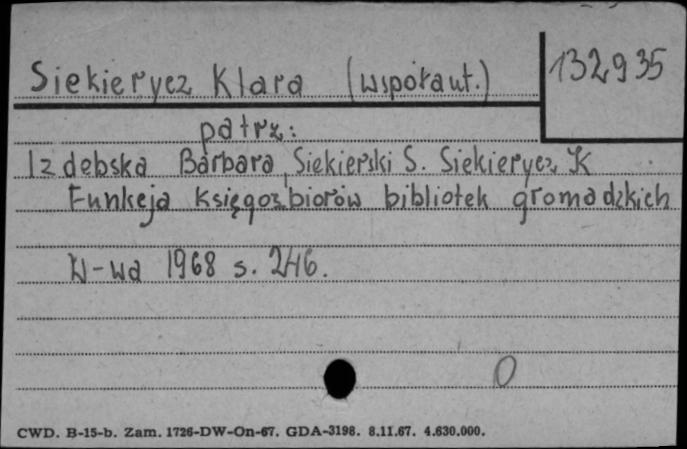 Siekierycz Klara (współaut.)
132935
patrz:
Izdebska Barbara, Siekierski S. Siekierycz K
Funkcja księgozbiorów bibliotek gromadzkich
W-wa 1968 s. 246.
0
CWD. B-15-b. Zam. 1726-DW-On-67. GDA-3198. 8.11.67. 4.630.000.